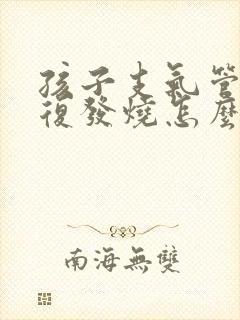 孩子支氣管
復發燒怎麼
南海無雙